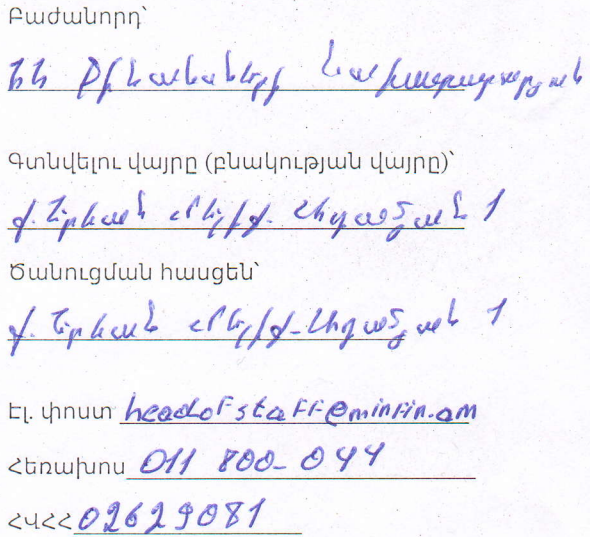 Բաժանորդ՝
ՀՀ Ֆինանսների նախարարություն
Գտնվելու վայրը (բնակության վայրը)՝
ք. Երևան Մելիք-Ադամյան 1
Ծանուցման հասցեն՝
ք. Երևան Մելիք-Ադամյան 1
Էլ. փոստ headofstaff@minfin.am
Հեռախոս 011 800-044
ՀՎՀՀ 02629081